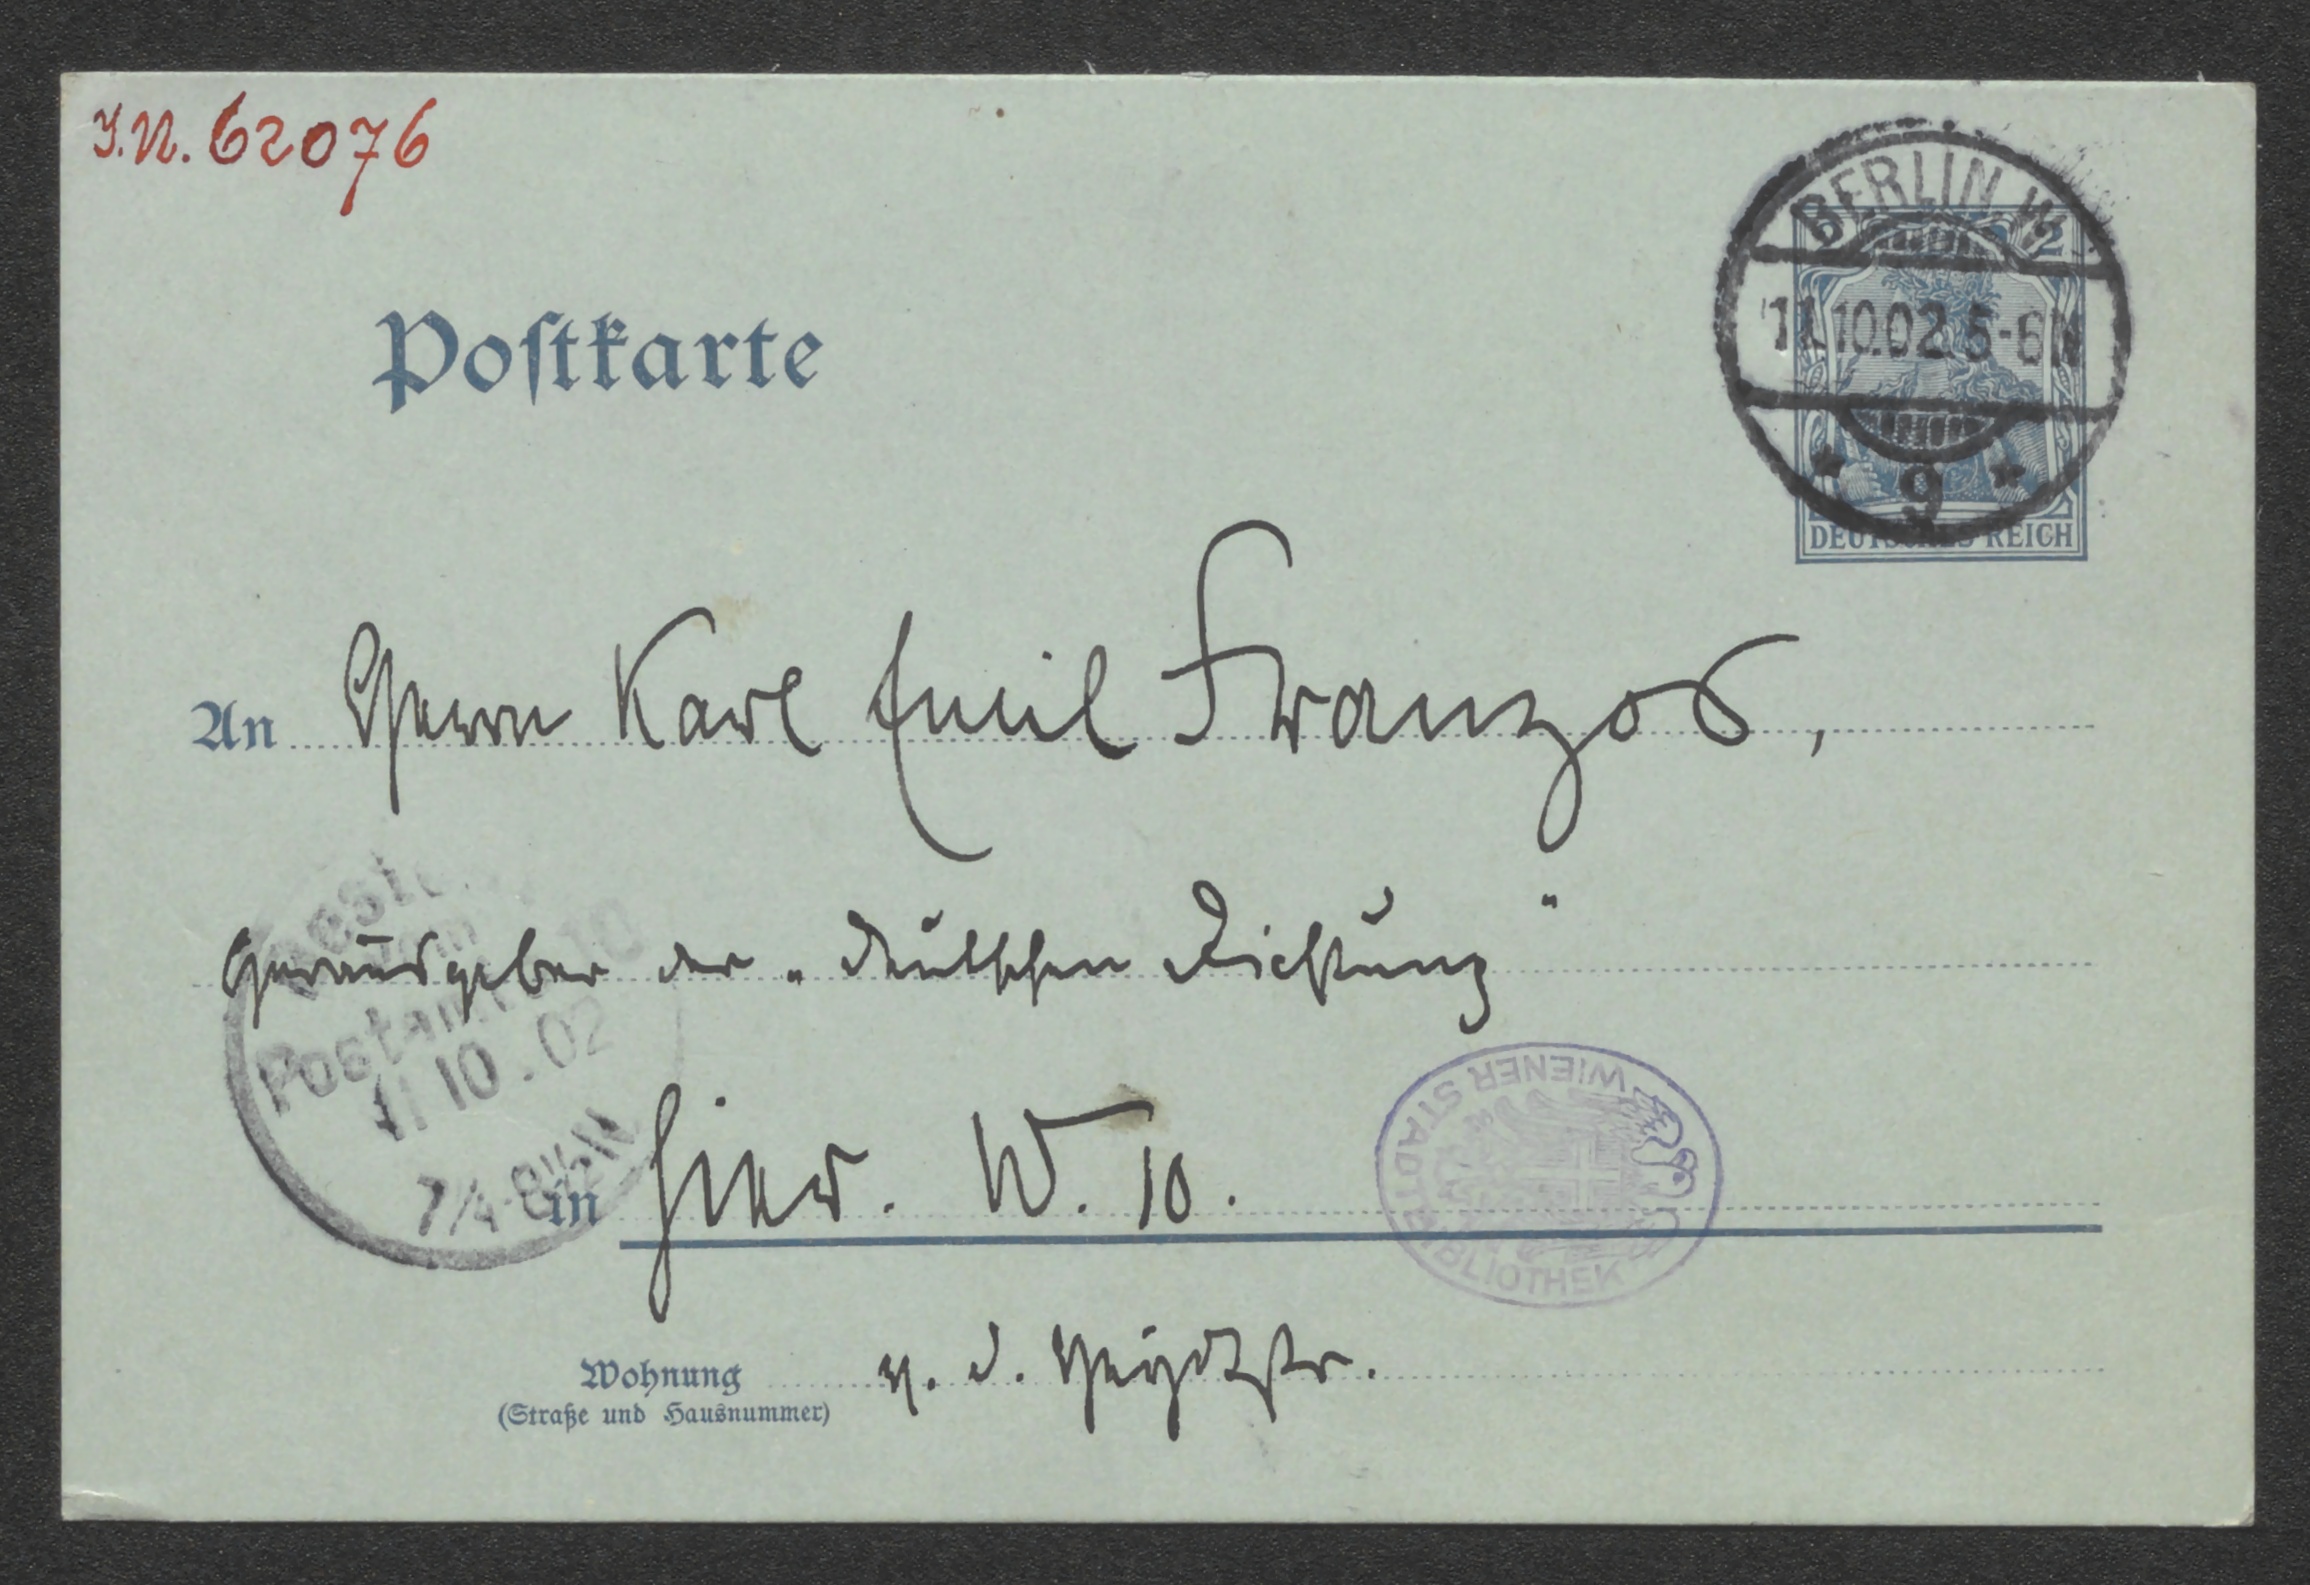 J.N. 62076
BERLIN W.
11.10.02.5-6N
* 9 *
DEUTSCHES REICH
Postkarte
An Herrn Karl Emil Franzos,
Herausgeber der „Deutschen Dichtung"
Bestellt
vom
Postamte 10
11 10.02
7¼-8½N
in Hier. W. 10.
WIENER STADTBIBLIOTHEK
Wohnung v. d. Heydtstr.
(Straße und Hausnummer)